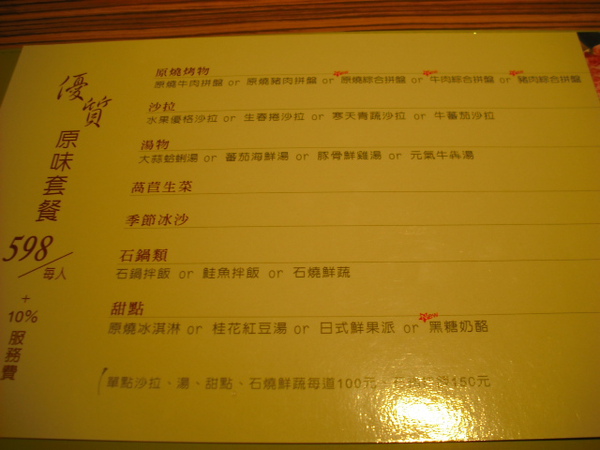 優質
原味套餐
598/每人
+
10%
服務費
原燒烤物
原燒牛肉拼盤 or 原燒豬肉拼盤 or 原燒綜合拼盤 or 牛肉綜合拼盤 or 豬肉綜合拼盤
沙拉
水果優格沙拉 or 生春捲沙拉 or 寒天青蔬沙拉 or 牛蕃茄沙拉
湯物
大蒜蛤蜊湯 or 蕃茄海鮮湯 or 豚骨鮮雞湯 or 元氣牛犇湯
萵苣生菜
季節冰沙
石鍋類
石鍋拌飯 or 鮭魚拌飯 or 石燒鮮蔬
甜點
原燒冰淇淋 or 桂花紅豆湯 or 日式鮮果派 or 黑糖奶酪
單點沙拉、湯、甜點、石燒鮮蔬每道100元、石鍋 150元